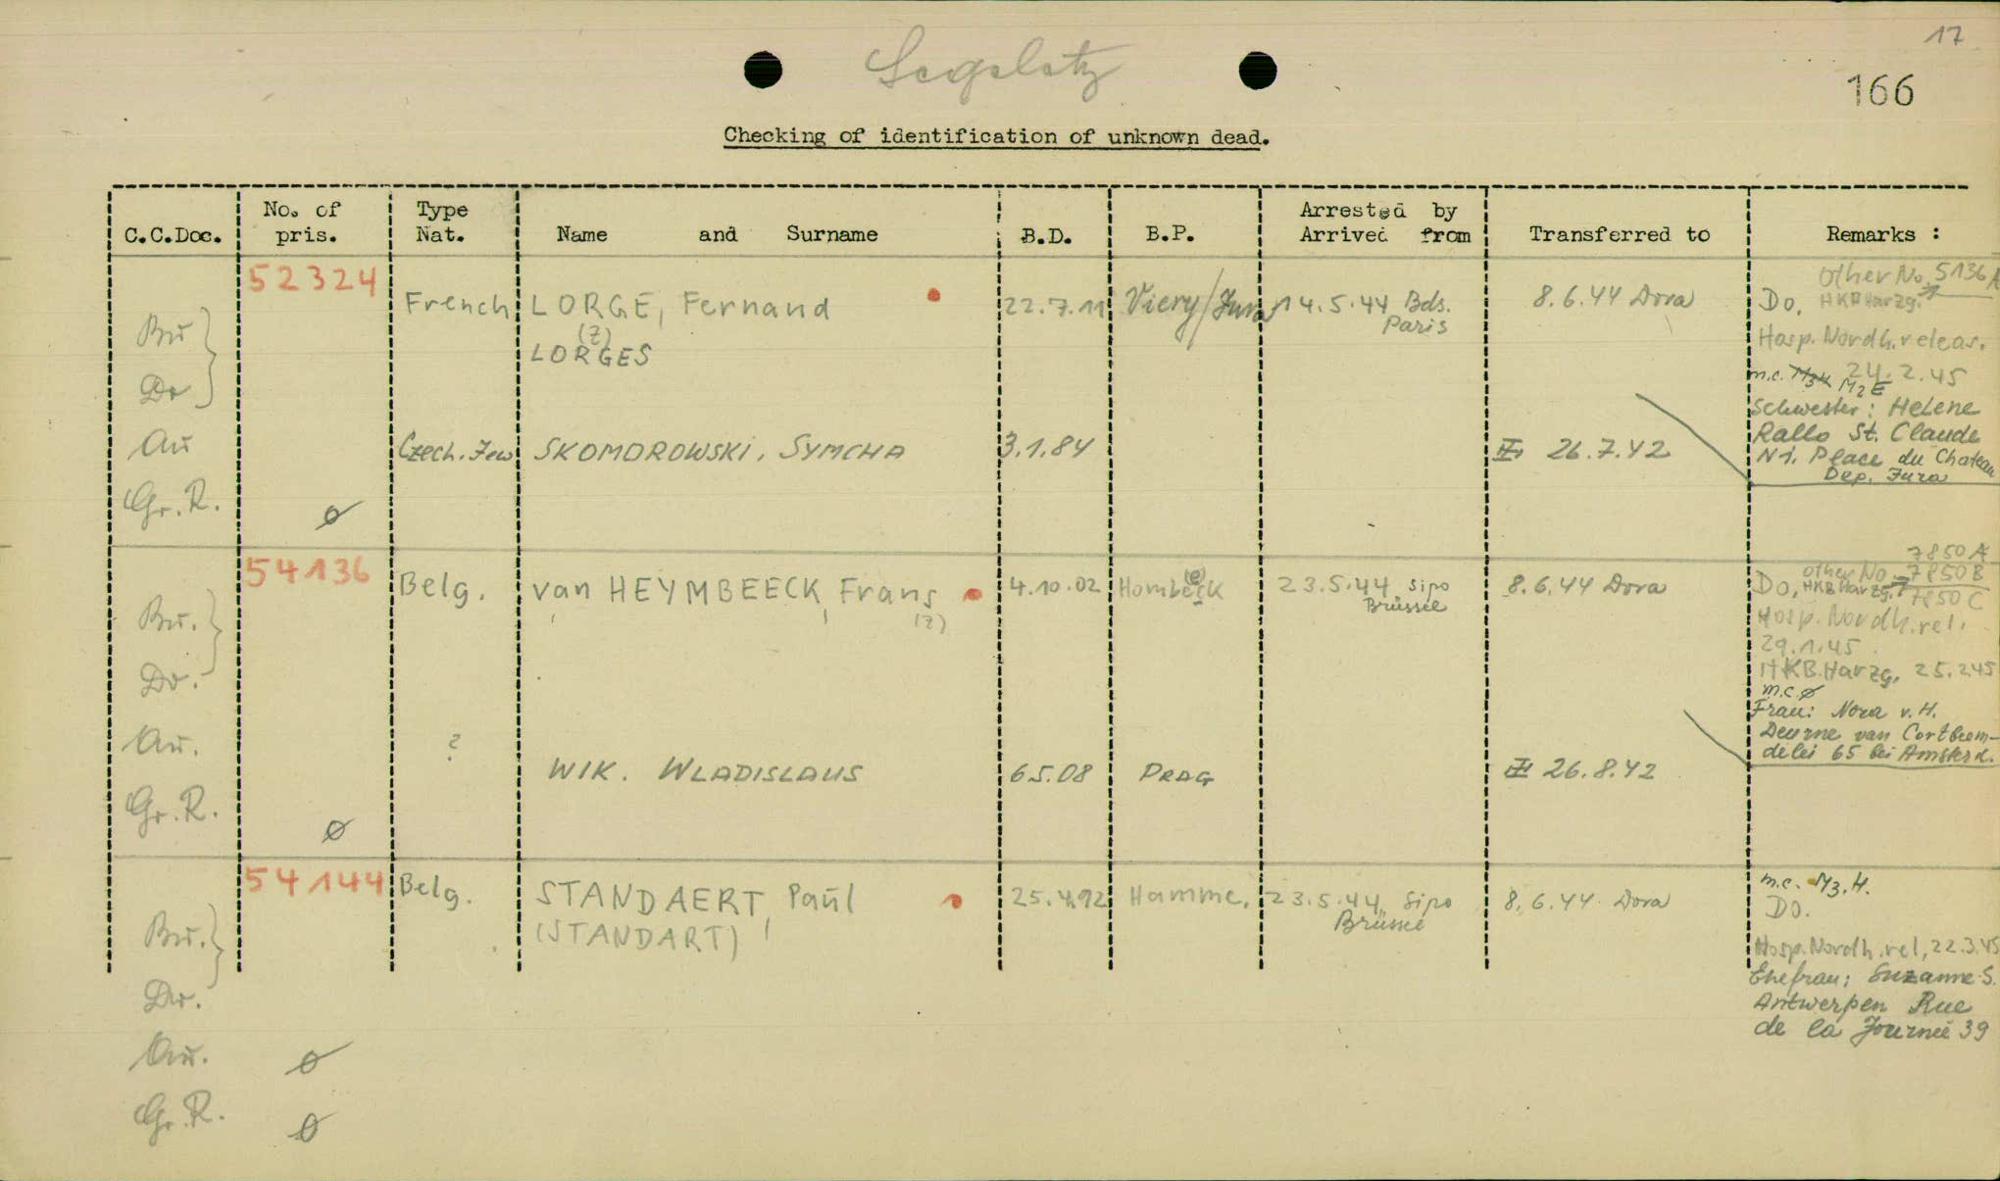 17
Segeletz
166
Checking of identification of unknown dead.
C.C.Doc. No. of pris. Type Nat. Name and Surname B.D. B.P. Arrested by Arrived from Transferred to Remarks :
52324
Other No. 5136 A
Bu French LORGE, Fernand 22.7.11 Viery/Jura 14.5.44 Bds. Paris 8.6.44 Dora Do, HKB Harzg.
(Z)
LORGES
Hosp. Nordh. releas.
24.2.45
Do m.c. M2E
Schwester: Helene
Au Czech. Jew SKOMOROWSKI, SYMCHA 3.1.84 II 26.7.42 Rallo St. Claude
N1. Place du Chateau
Dep. Jura
Gr. R. ø
7850 A
54136 other No. 7850 B
Bu. Belg. van HEYMBEECK, Frans 4.10.02 Hombeeck 23.5.44 Sipo Brüssel 8.6.44 Dora Do, HKB Harzg. 7850 C
(z) (e)
Hosp. Nordh. rel.
29.1.45
Do. HKB. Harzg. 25.2.45
m.c. ø
Frau: Nora v. H.
Au. ? Deurne van Cortbeem-
delei 65 bei Amsterd.
WIK. WLADISLAUS 6.5.08 PRAG II 26.8.42
Gr. R. ø
54144 Belg. STANDAERT, Paul 25.4.92 Hamme. 23.5.44 Sipo Brüssel 8.6.44 Dora m.c. M3.H.
Do.
Bu. (STANDART)
Hosp. Nordh. rel, 22.3.45
Do. Ehefrau: Suzanne S.
Antwerpen Rue
de la Journée 39
Au. ø
Gr. R. ø